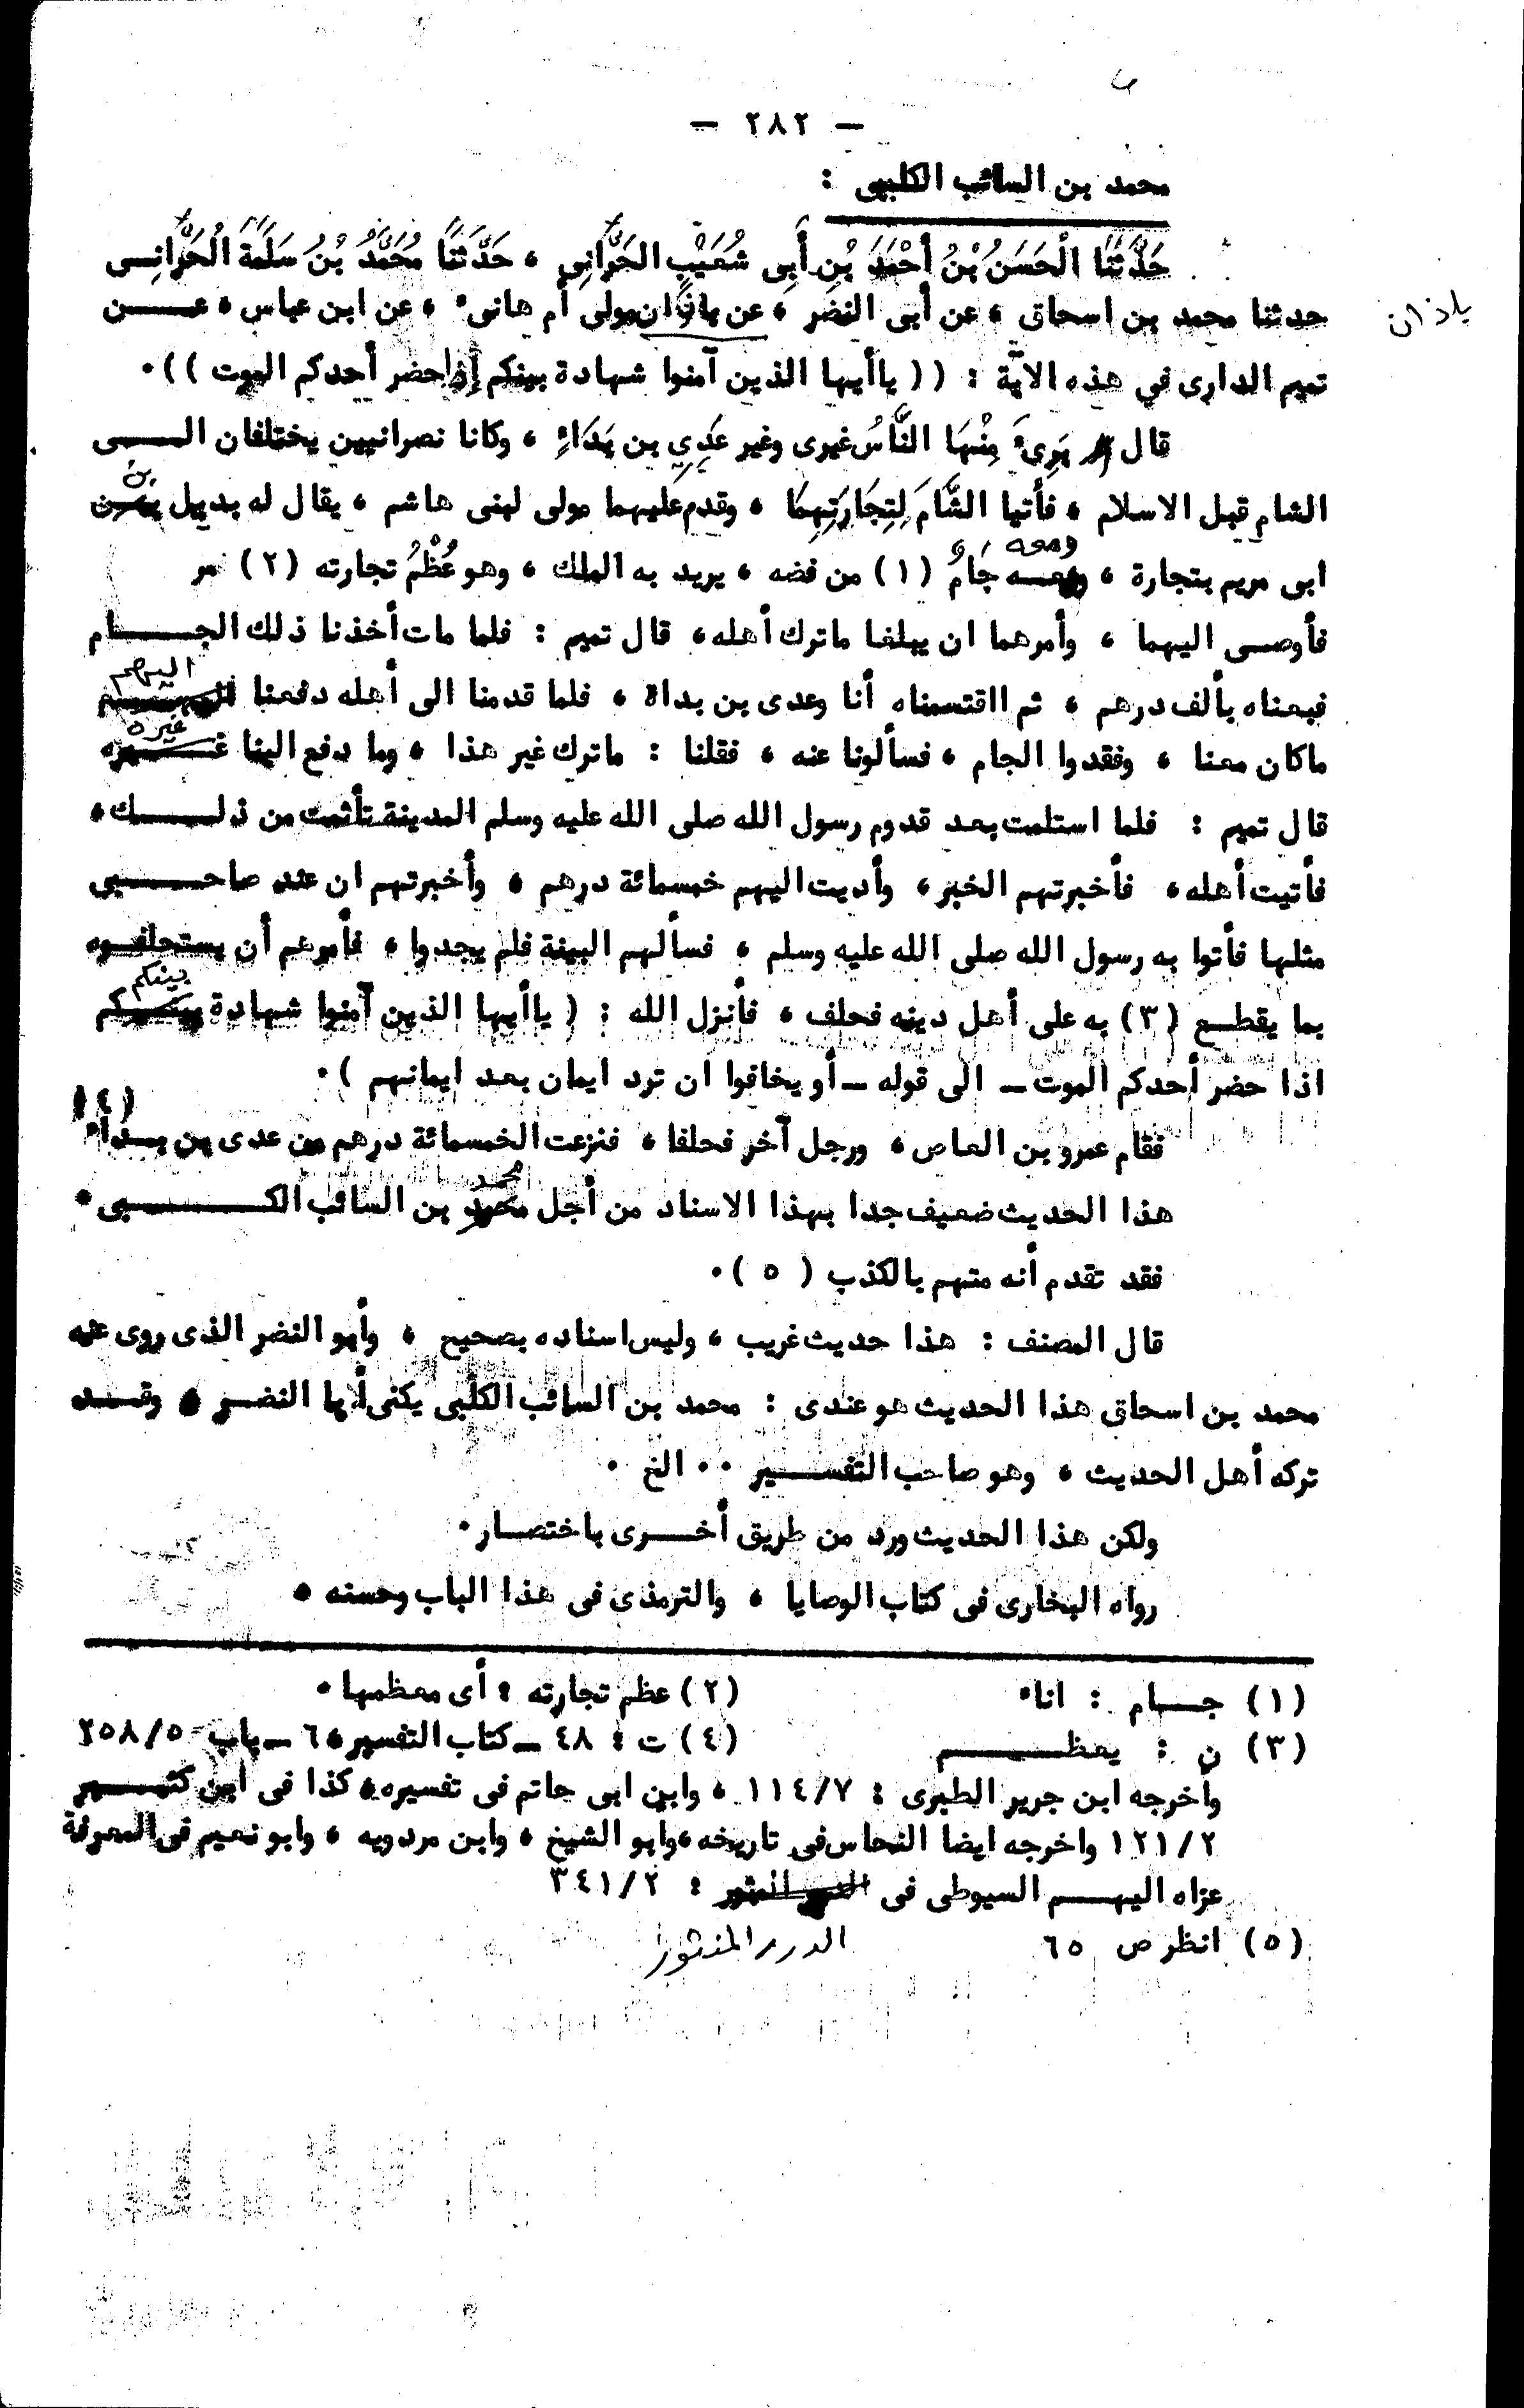 — ٢٨٢ —
محمد بن السائب الكلبي :
حَدَّثَنَا الْحَسَنُ بْنُ أَحْمَدَ بْنِ أَبِي شُعَيْبٍ الحَرَّانِي ، حَدَّثَنَا مُحَمَّدُ بْنُ سَلَمَةَ الْحَرَّانِـى
حدثنا محمد بن اسحاق ، عن أبى النضر ، عن باذان مولى أم هانى ، عن ابن عباس ، عـــن
باذان
تميم الدارى في هذه الآية : (( ياأيها الذين آمنوا شهادة بينكم إذا حضر أحدكم الموت )) .
قال بَرِىَ مِنْهَا النَّاسُ غيرى وغير عَدِى بن بَدَاءٍ ، وكانا نصرانيين يختلفان الــى
الشام قبل الاسلام ، فأتيا الشَّامَ لِتِجَارَتِهِمَا ، وقدم عليهما مولى لبنى هاشم ، يقال له بديل بن
ابى مريم بتجارة ، ومعه جَامٌ (١) من فضه ، يريد به الملك ، وهو عُظْمُ تجارته (٢) مر
فأوصى اليهما ، وأمرهما ان يبلغا ماترك أهله ، قال تميم : فلما مات أخذنا ذلك الجــام
فبعناه بألف درهم ، ثم اقتسمناه أنا وعدى بن بداة ، فلما قدمنا الى أهله دفعنا اليهم
ماكان معنا ، وفقدوا الجام ، فسألونا عنه ، فقلنا : ماترك غير هذا ، وما دفع الينا غيره
قال تميم : فلما استلمت بعد قدوم رسول الله صلى الله عليه وسلم المدينة تأثمت من ذلــك ،
فأتيت أهله ، فأخبرتهم الخبر ، وأديت اليهم خمسمائة درهم ، وأخبرتهم ان عند صاحــبى
مثلها فأتوا به رسول الله صلى الله عليه وسلم ، فسألهم البينة فلم يجدوا ، فأمرهم أن يستحلفــوه
بما يقطـع (٣) به على أهل دينه فحلف ، فأنزل الله : ( ياأيها الذين آمنوا شهادة بينكم
اذا حضر أحدكم الموت ــ الى قوله ــ أو يخافوا ان ترد ايمان بعد ايمانهم ) .
فقام عمرو بن العاص ، ورجل آخر فحلفا ، فنزعت الخمسمائة درهم من عدى بن بــداء (٤)
هذا الحديث ضعيف جدا بهذا الاسناد من أجل محمد بن السائب الكـــبى .
فقد تقدم أنه متهم بالكذب ( ٥ ) .
قال المصنف : هذا حديث غريب ، وليس اسناده بصحيح ، وأبو النضر الذى روى عنه
محمد بن اسحاق هذا الحديث هو عندى : محمد بن السائب الكلبى يكنى أبا النضـر ، وقــد
تركه أهل الحديث ، وهو صاحب التفســير .. الخ .
ولكن هذا الحديث ورد من طريق أخــرى باختصـار .
رواه البخارى فى كتاب الوصايا ، والترمذى فى هذا الباب وحسنه .
(١) جــام : اناء (٢) عظم تجارته : أى معظمها .
(٣) ن : يعظــم (٤) ت : ٤٨ ــ كتاب التفسير ، ٦ ــ باب ٢٥٨/٥
واخرجه ابن جرير الطبرى : ١١٤/٧ ، وابن ابى حاتم فى تفسيره ، كذا فى ابن كثــير
١٢١/٢ واخرجه ايضا النحاس فى تاريخه ، وابو الشيخ ، وابن مردويه ، وابو نعيم فى المعرفة
عزاه اليهــم السيوطى فى الدرر المنثور : ٣٤١/٢
(٥) انظر ص ٦٥